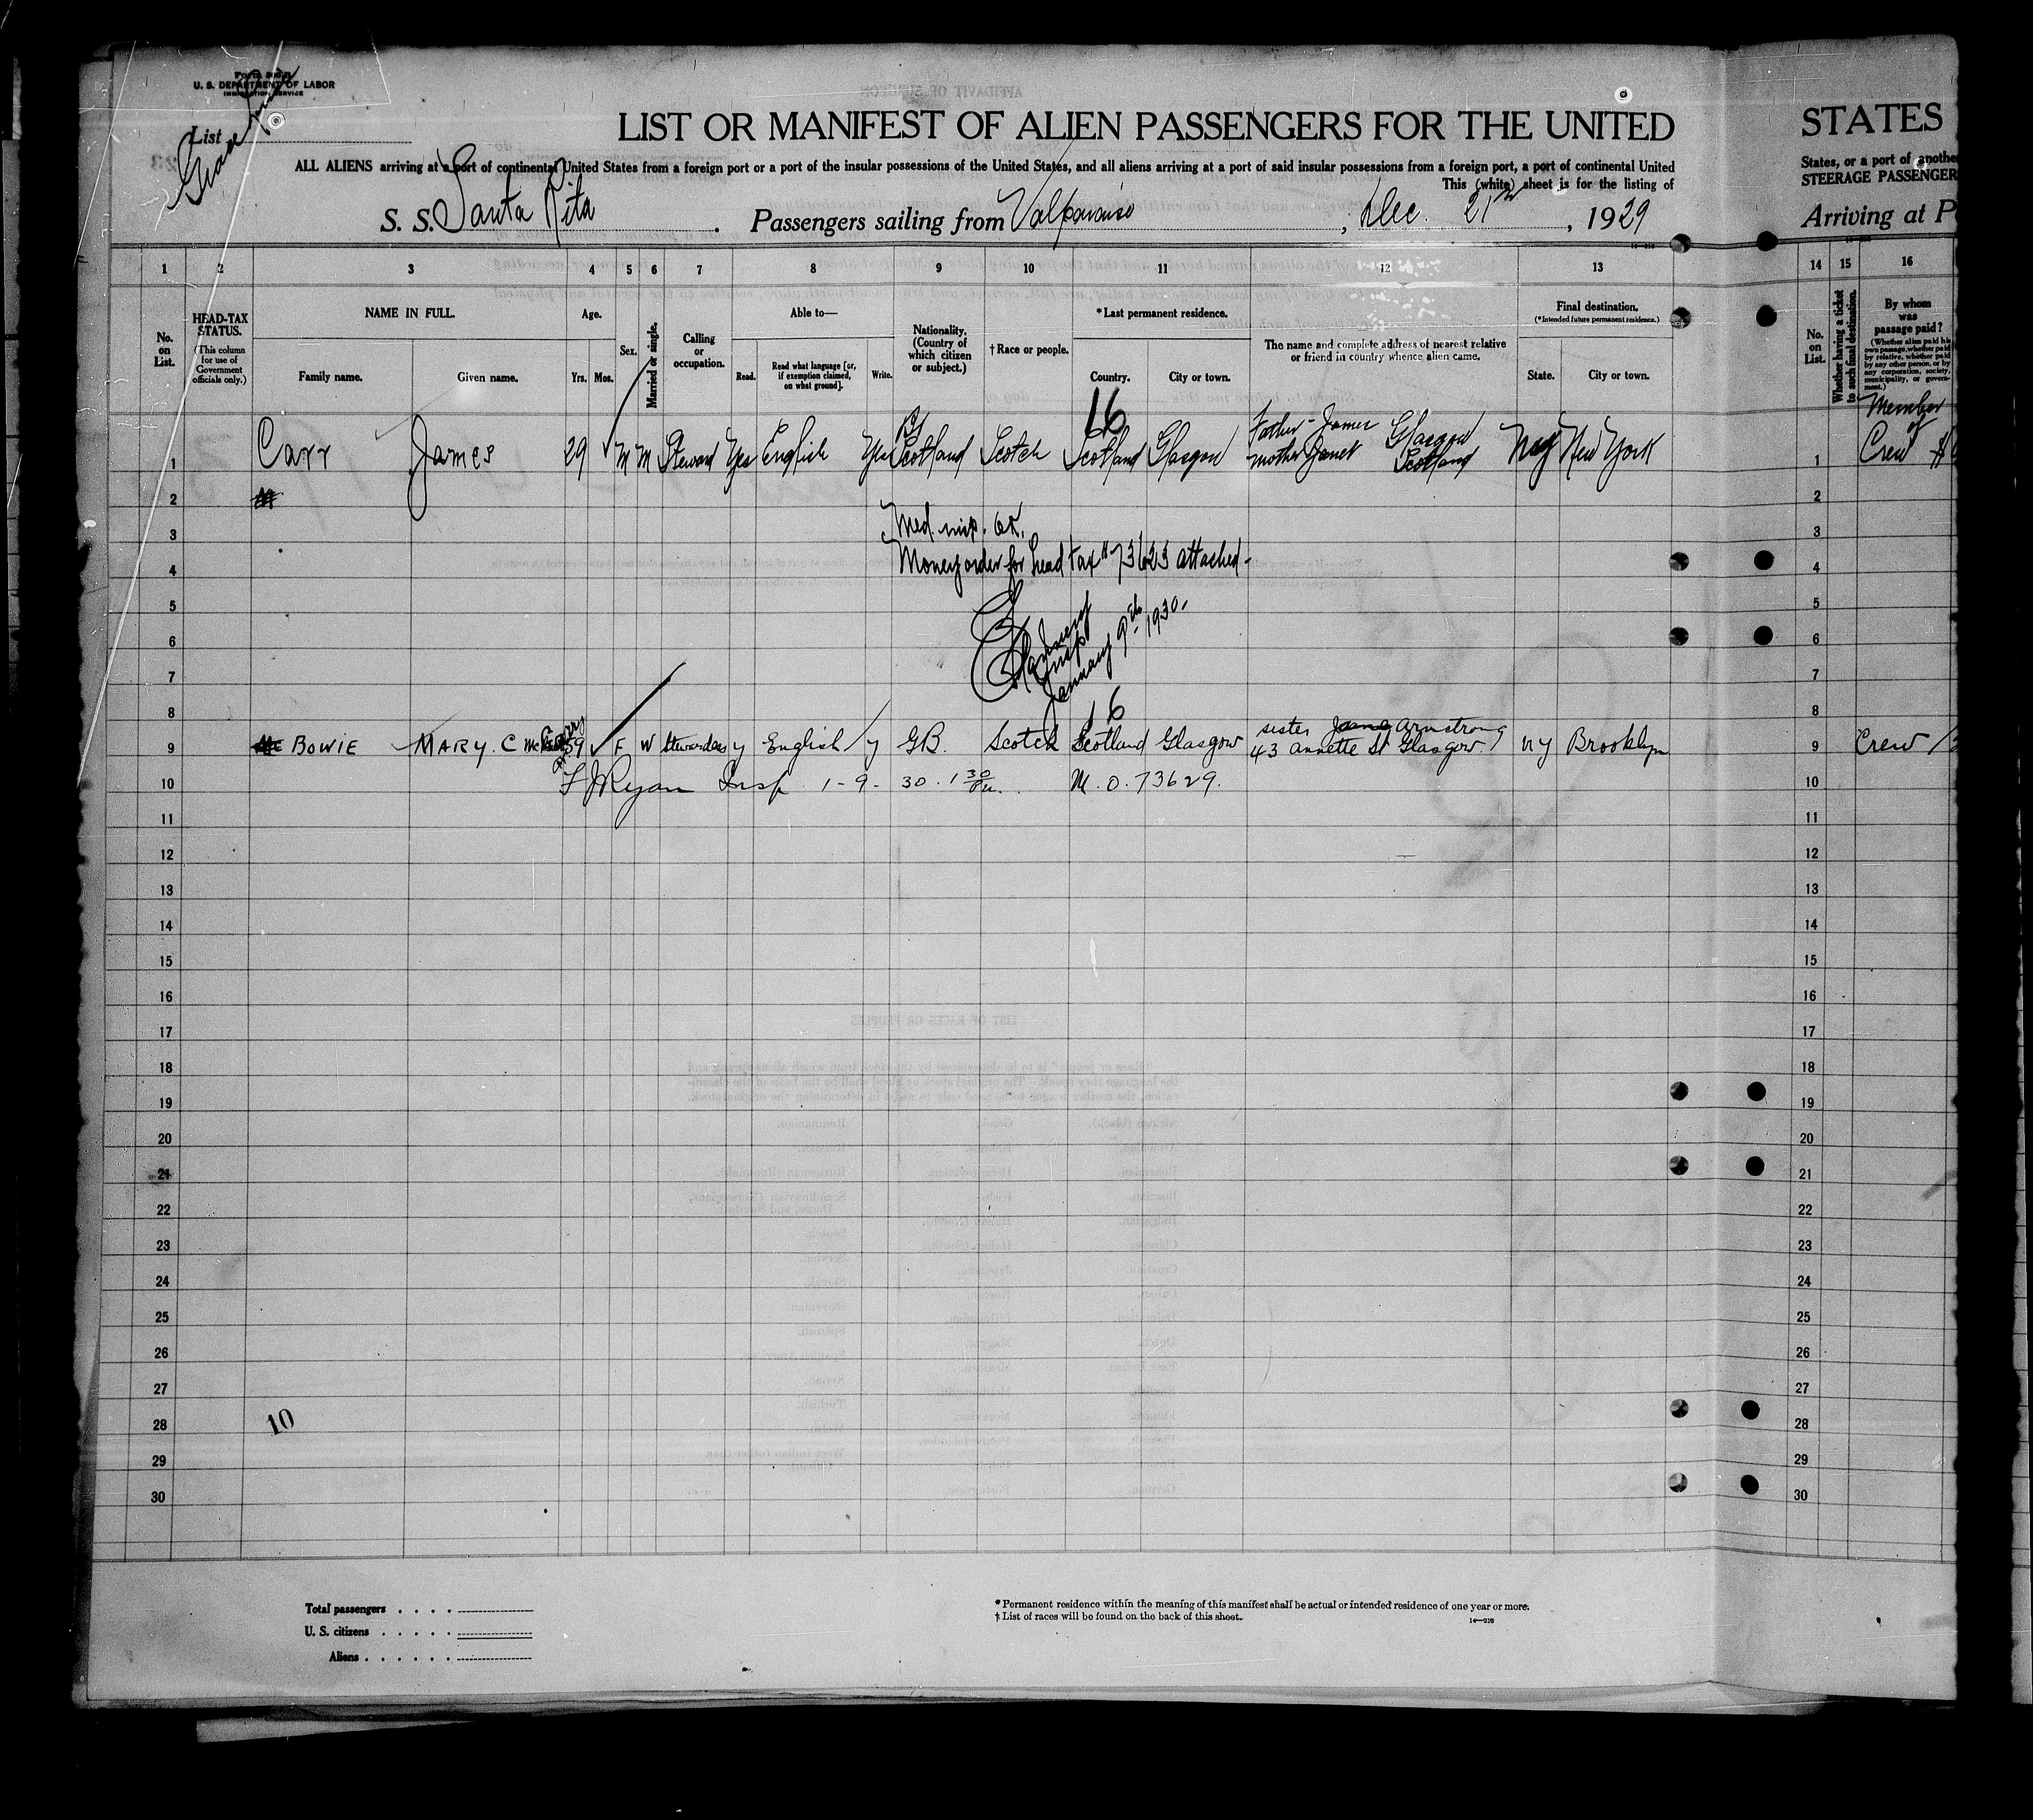 Form 500 B
U. S. DEPARTMENT OF LABOR
IMMIGRATION SERVICE
List
Grace Line
LIST OR MANIFEST OF ALIEN PASSENGERS FOR THE UNITED
ALL ALIENS arriving at a port of continental United States from a foreign port or a port of the insular possessions of the United States, and all aliens arriving at a port of said insular possessions from a foreign port, a port of continental United
This (white) sheet is for the listing of
S. S. Santa Rita. Passengers sailing from Valparaiso, Dec. 21st, 1929
STATES
States, or a port of another
STEERAGE PASSENGER
Arriving at P
1 2 3 4 5 6 7 8 9 10 11 12 13
14 15 16
No. on List.
HEAD-TAX STATUS.
(This column for use of Government officials only.)
NAME IN FULL.
Family name. Given name.
Age.
Yrs. Mos.
Sex.
Married or single.
Calling or occupation.
Able to—
Read. Read what language [or, if exemption claimed, on what ground]. Write.
Nationality. (Country of which citizen or subject.)
†Race or people.
*Last permanent residence.
Country. City or town.
The name and complete address of nearest relative or friend in country whence alien came.
Final destination.
(*Intended future permanent residence.)
State. City or town.
No. on List.
Whether having a ticket to such final destination.
By whom was passage paid?
(Whether alien paid his own passage, whether paid by relative, whether paid by any other person, or by any corporation, society, municipality, or government.)
16
1 Carr James 29 M M Steward Yes English Yes Br Scotland Scotch Scotland Glasgow Father - James mother Janet Glasgow Scotland NY New York
1 Member of Crew
2
3 Med. insp. OK.
4 Money order for head tax # 73623 attached -
5
6 Insp
7 January 9th 1930.
8 16
9 BOWIE MARY. C 59 F W Stewardess y English y G.B. Scotch Scotland Glasgow sister Jane Armstrong 43 Annette St Glasgow NY Brooklyn
9 Crew
10 F J Ryan Insp. 1-9-30. 1 30 Pm. M.O. 73629.
11
12
13
14
15
16
17
18
19
20
21
22
23
24
25
26
27
28 10
29
30
Total passengers
U. S. citizens
Aliens
* Permanent residence within the meaning of this manifest shall be actual or intended residence of one year or more.
† List of races will be found on the back of this sheet.
14—226